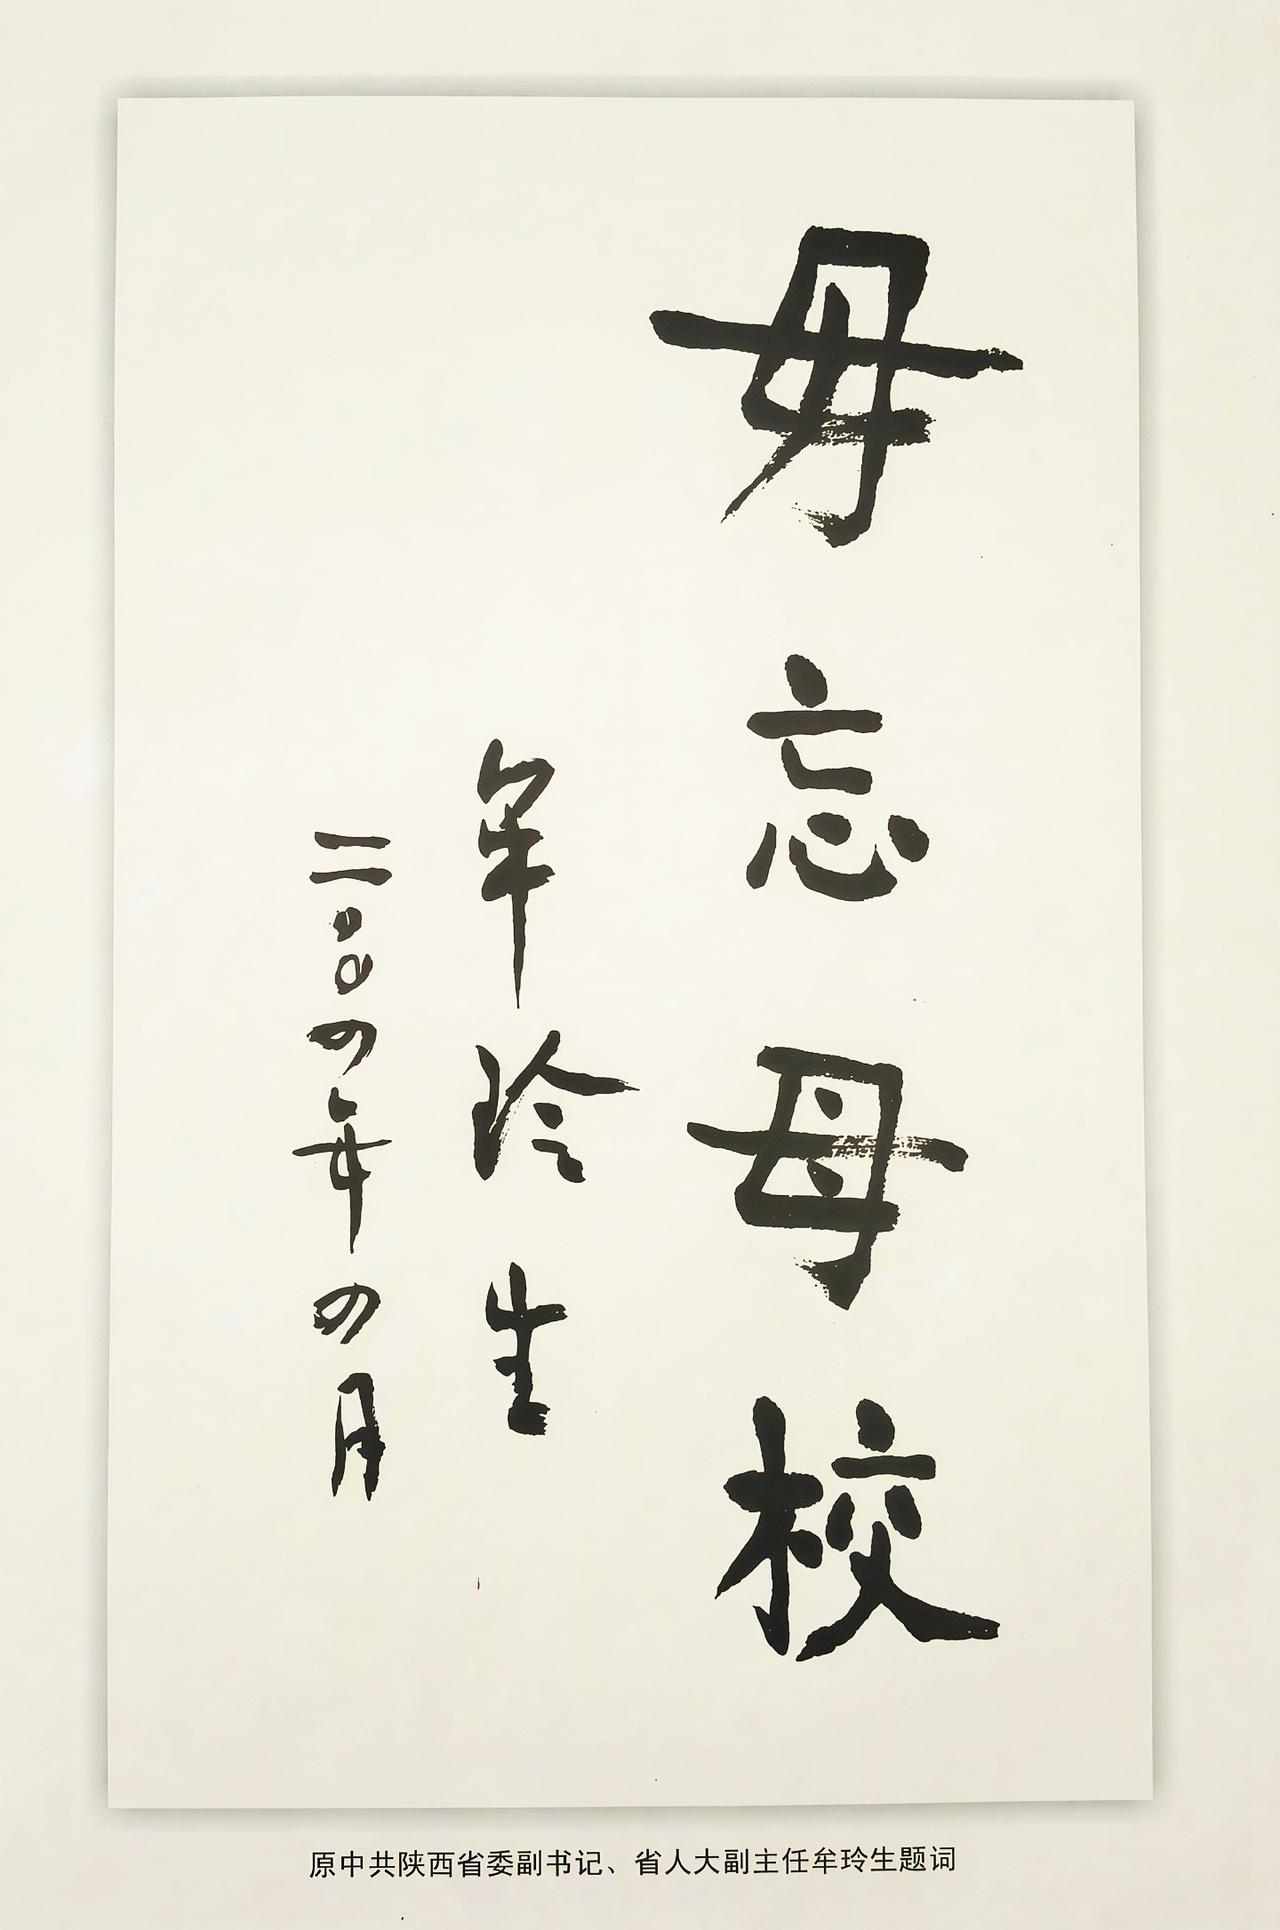 毋忘母校
牟玲生
二〇〇四年四月
原中共陕西省委副书记、省人大副主任牟玲生题词